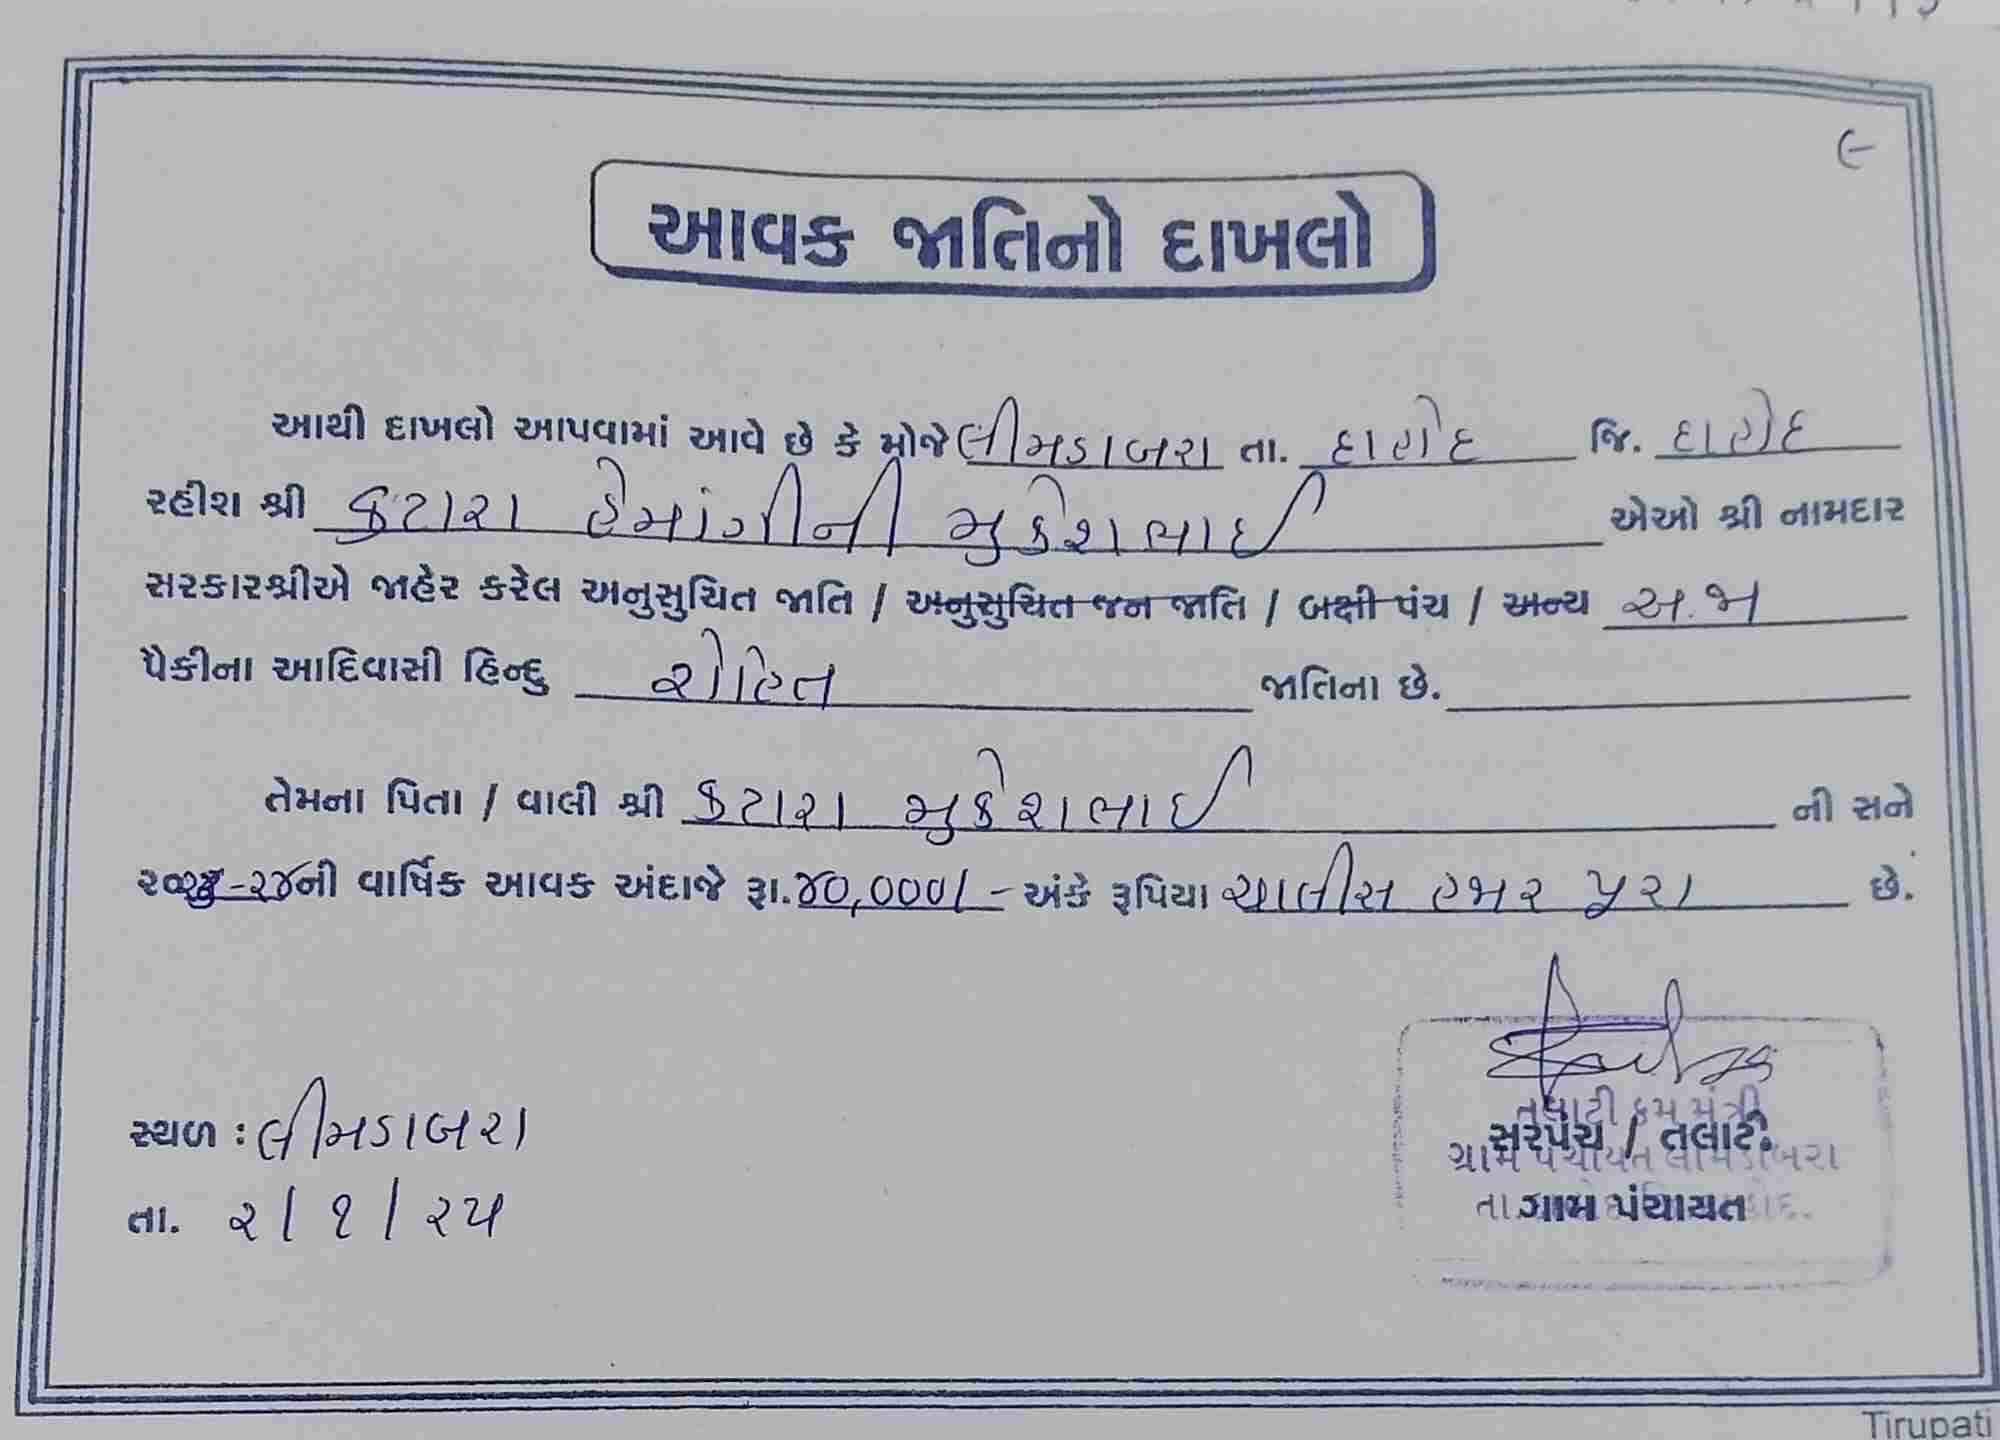 ૯
આવક જાતિનો દાખલો
આથી દાખલો આપવામાં આવે છે કે મોજે લીમડાબરા તા. દાહોદ જિ. દાહોદ
રહીશ શ્રી કટારા હેમાંગીની મુકેશભાઈ એઓ શ્રી નામદાર
સરકારશ્રીએ જાહેર કરેલ અનુસુચિત જાતિ / અનુસુચિત જન જાતિ / બક્ષી પંચ / અન્ય અ.જા
પૈકીના આદિવાસી હિન્દુ રોહિત જાતિના છે.
તેમના પિતા / વાલી શ્રી કટારા મુકેશભાઈ ની સને
૨૦૨૩-૨૪ની વાર્ષિક આવક અંદાજે રૂા.૪૦,૦૦૦/- અંકે રૂપિયા ચાલીસ હજાર પુરા છે.
તલાટી કમ મંત્રી
સ્થળ : લીમડાબરા સરપંચ / તલાટી
ગ્રામ પંચાયત લીમડાબરા
તા. ૨/૧/૨૫ ગ્રામ પંચાયત
Tirupati